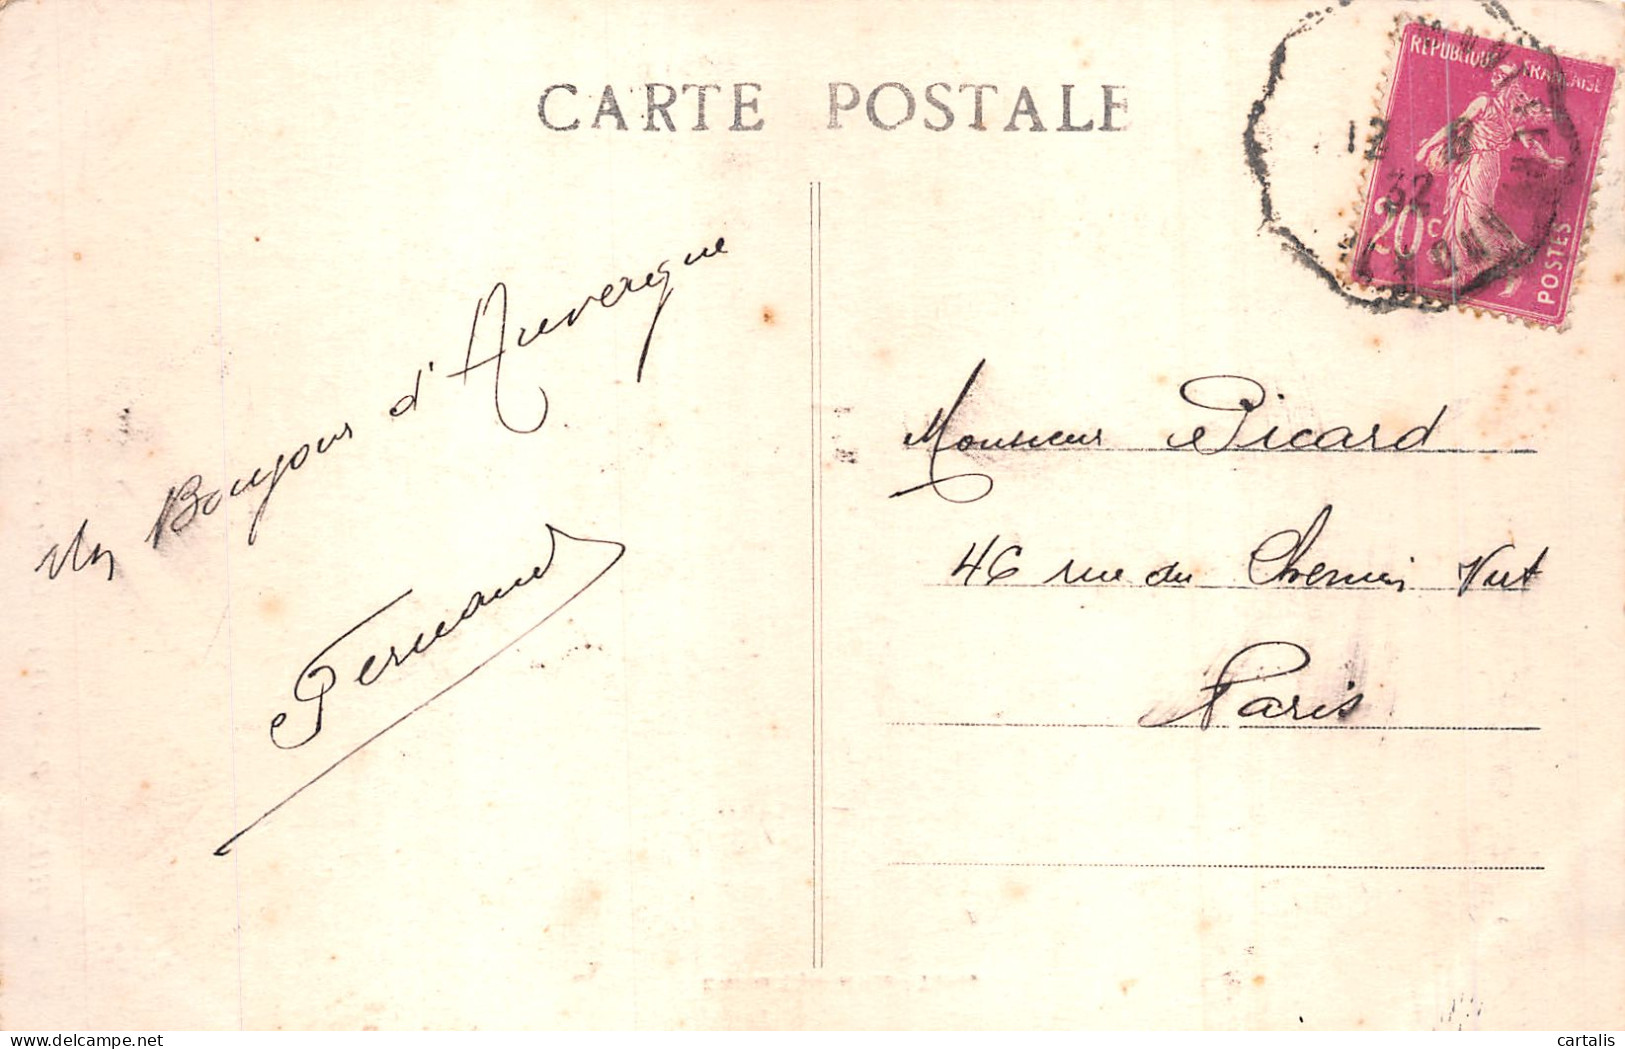 CARTE POSTALE
REPUBLIQUE FRANÇAISE
12 8
32
20c
POSTES
Un Bonjour d'Auvergne
Fernand
Monsieur Picard
46 rue du Chemin Vert
Paris
cartalis